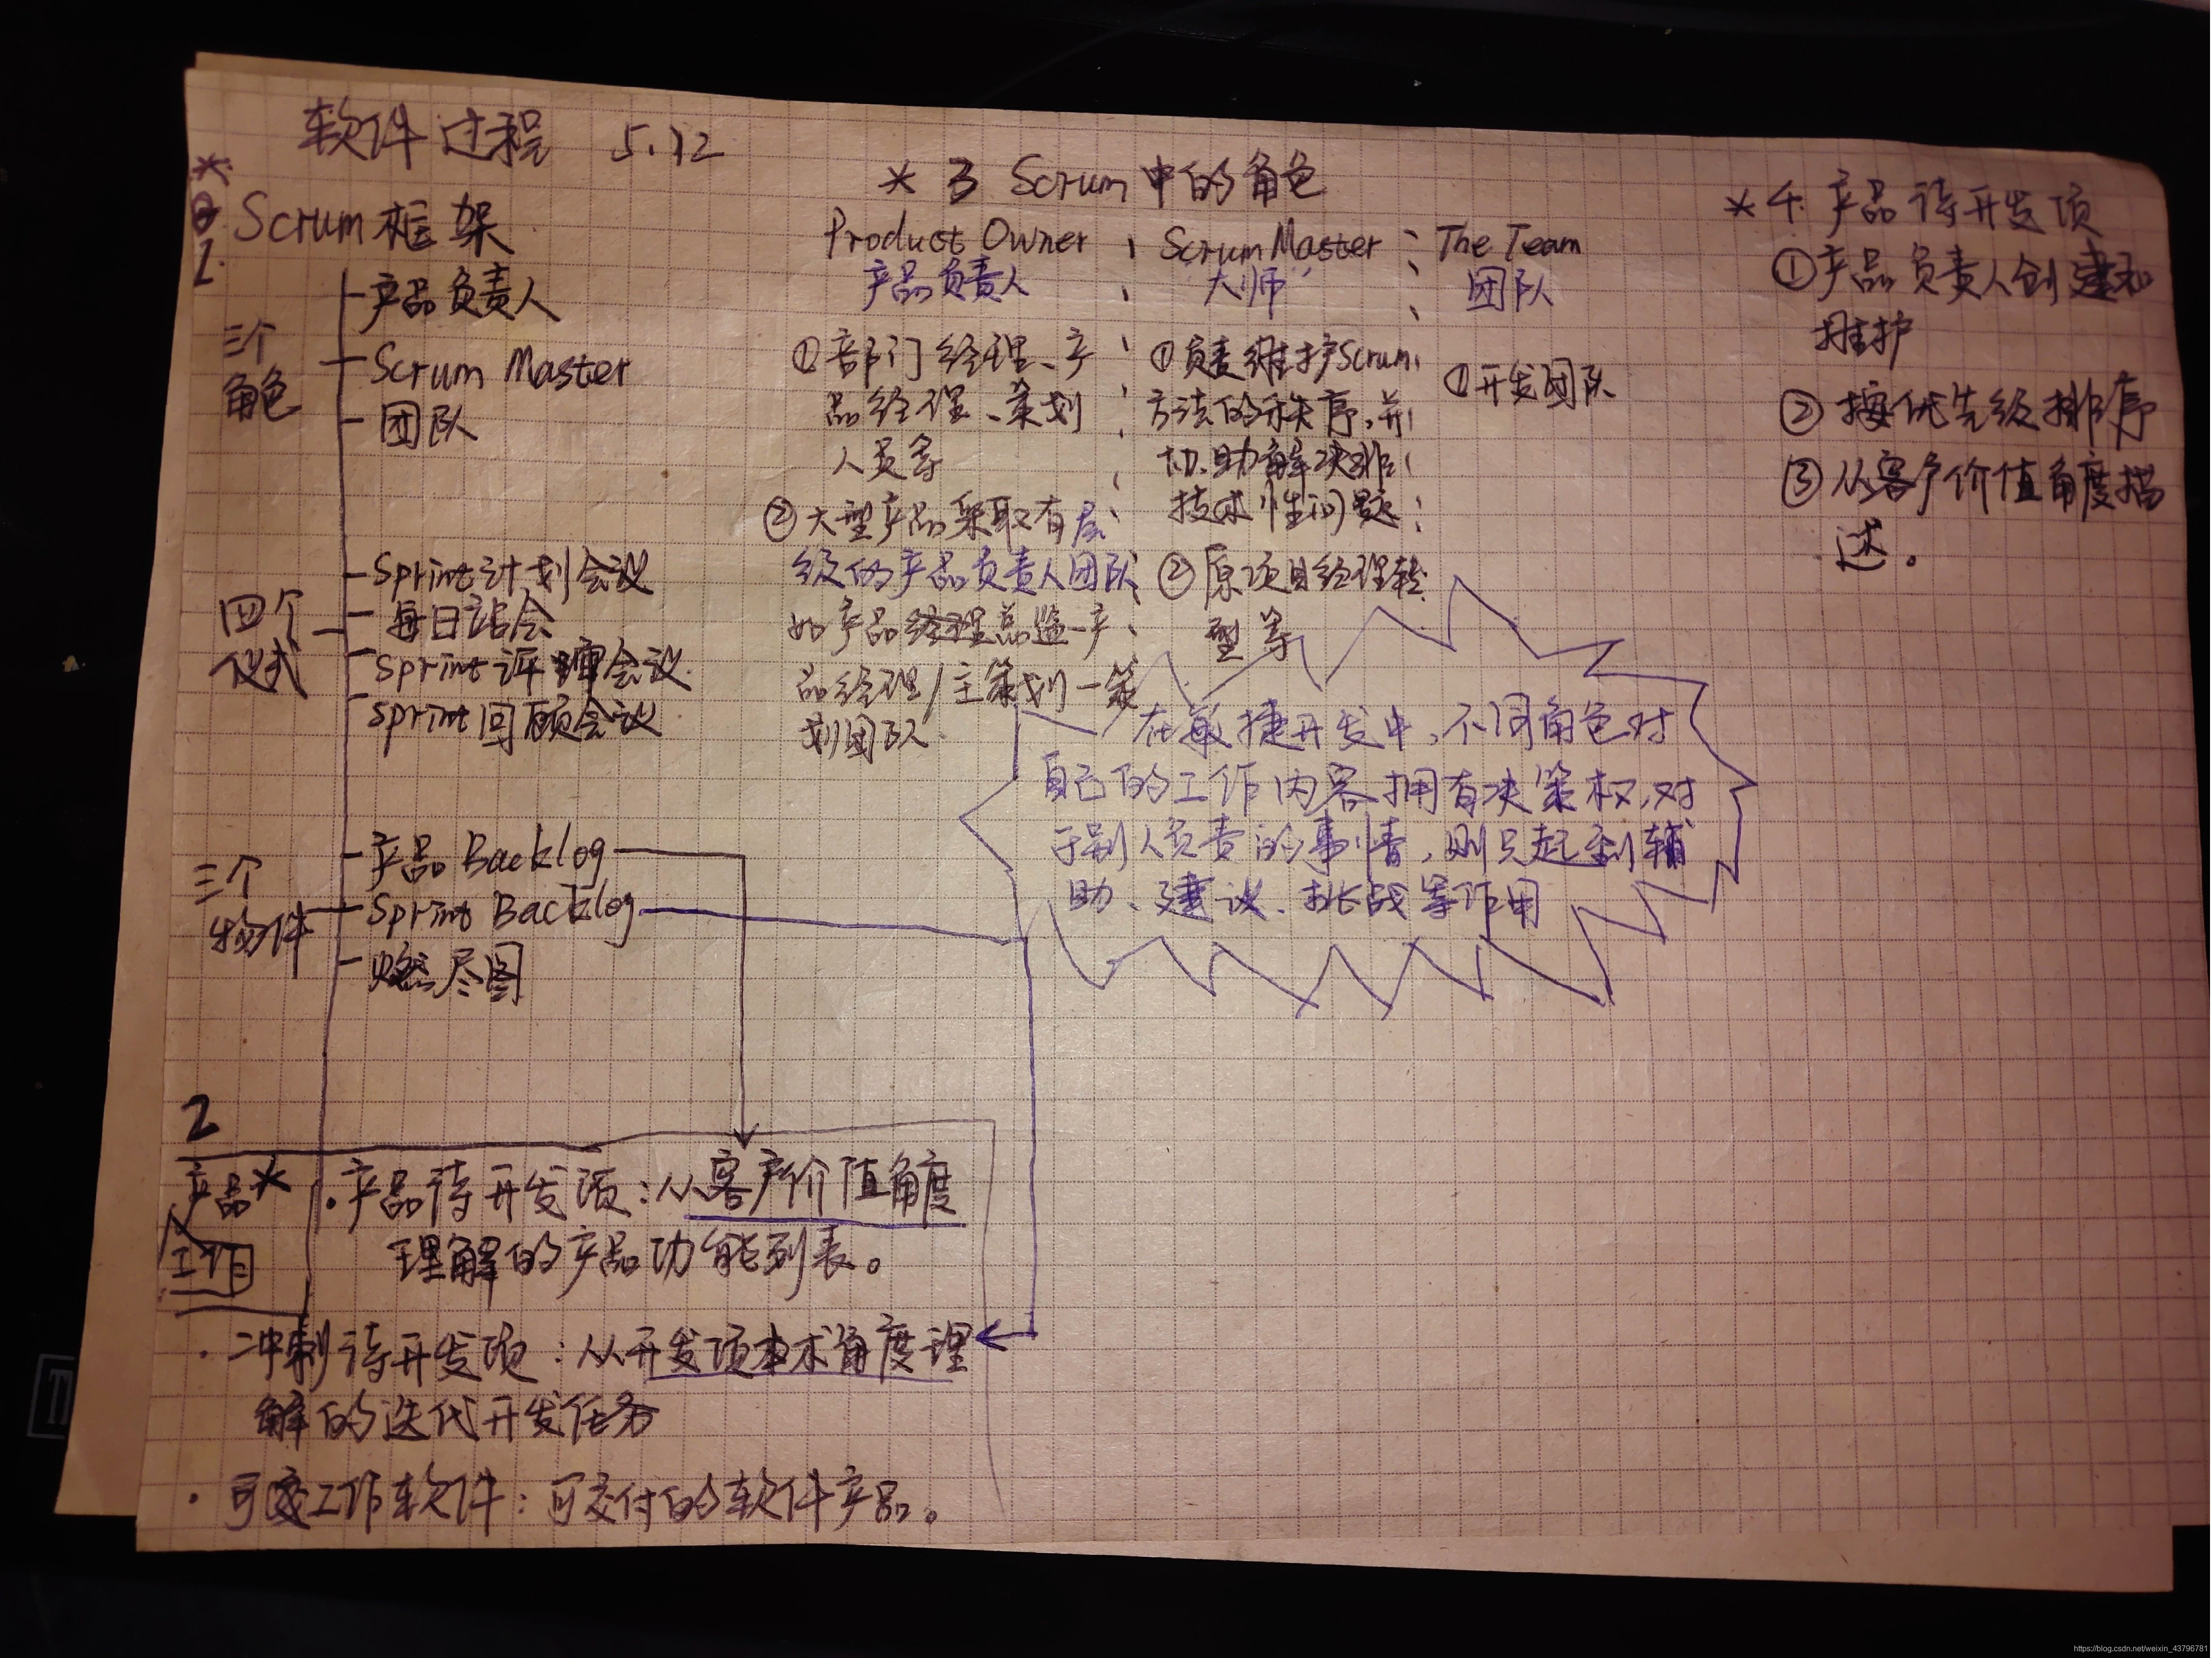 软件过程 5.12
* 1. Scrum框架
三个
角色
产品负责人
Scrum Master
团队
四个
仪式
Sprint计划会议
每日站会
Sprint评审会议
Sprint回顾会议
三个
物件
产品 Backlog
Sprint Backlog
燃尽图
2
产品*
工作
·产品待开发项:从客户价值角度
理解的产品功能列表。
·冲刺待开发项:从开发项技术角度理
解的迭代开发任务
·可交工作软件:可交付的软件产品。
* 3 Scrum中的角色
Product Owner
产品负责人
①部门经理、产
品经理、策划
人员等
②大型产品采取有层
级的产品负责人团队
如产品经理总监一产
品经理/主策划一策
划团队
Scrum Master
大师
①负责维护Scrum
方法的秩序,并
协助解决非
技术性问题
②原项目经理转
型等
The Team
团队
①开发团队
在敏捷开发中,不同角色对
自己的工作内容拥有决策权,对
于别人负责的事情,则只起到辅
助、建议、挑战等作用
*4. 产品待开发项
①产品负责人创建和
维护
②按优先级排序
③从客户价值角度描
述。
https://blog.csdn.net/weixin_43796781